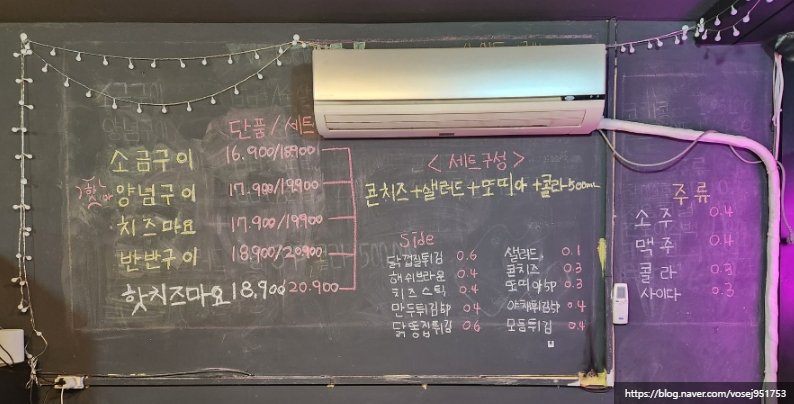 단품/세트
소금구이 16.900/18.900
핫 양념구이 17.900/19.900
치즈마요 17.900/19900
반반구이 18.900/20.900
핫치즈마요 18,900/20.900
<세트구성>
콘치즈+샐러드+또띠아+콜라500mL
Side
닭껍질튀김 0.6
해쉬브라운 0.4
치즈스틱 0.4
만두튀김5p 0.4
닭똥집튀김 0.6
샐러드. 0.1
콘치즈 0.3
또띠아5p 0.3
야채튀김5p 0.4
모듬튀김 0.4
주류
소주 0.4
맥주 0.4
콜라 0.3
사이다 0.3
https://blog.naver.com/vosej951753